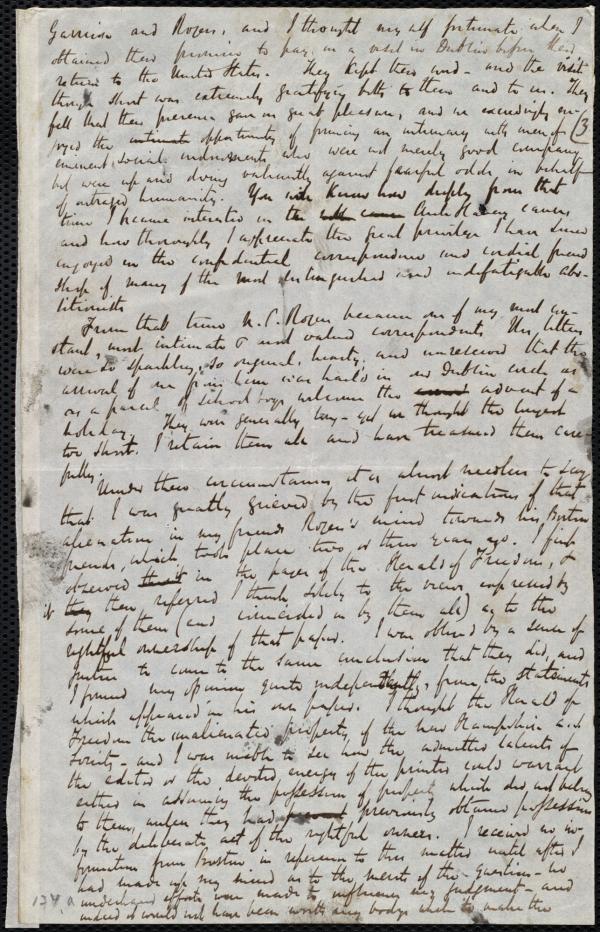 Garrison and Rogers, and I thought myself fortunate when I
obtained their promise to pay us a visit in Dublin before their
return to the United States. They kept their word - and the visit
though short was extremely gratifying both to them and to us. They
felt that their presence gave us great pleasure, and we exceedingly en-
(3
joyed the opportunity of forming an intimacy with men of
eminent social endowments, who were not merely good company
but were up and doing valiantly against fearful odds in behalf
of outraged humanity. You know how deeply from that
time I became interested in the Anti Slavery cause,
and how thoroughly I appreciate the great privilege I have since
enjoyed in the confidential correspondence and cordial friend
ship of many of the most distinguished and indefatigable abo-
litionists
From that time N. P. Rogers became one of my most con-
stant, most intimate & most valued correspondents. His letters
were so sparkling, so original, hearty, and unreserved that the
arrival of one from him was hailed in our Dublin circle as
as a parcel of school boys welcome the advent of a
holiday. They were generally long - yet we thought the longest
too short. I retain them all and have treasured them care-
fully.
Under these circumstances it is almost needless to say
that I was greatly grieved by the first indications of that
alienation in my friend Rogers's mind towards his Boston
friends, which took place two, or three years ago. I first
observed in the pages of the Herald of Freedom, &
it then referred I think solely to the views expressed by
some of them (and coincided in by them all) as to the
rightful ownership of that paper. I was obliged by a sense of
justice to come to the same conclusion that they did, and
I formed my opinion quite independently, from the statements
which appeared in his own paper. I thought the Herald of
Freedom the unalienated property of the New Hampshire A.S.
Society - and I was unable to see how the admitted talents of
the editor or the devoted energy of the printer could warrant
either in assuming the possession of property which did not belong
to them, unless they had previously obtained possession
by the deliberate act of the rightful owners. I received no in-
formation from Boston in reference to this matter until after I
had made up my mind as to the merits of the question - no
underhand efforts were made to influence my judgment - and
indeed it would not have been worth any body's while to make the